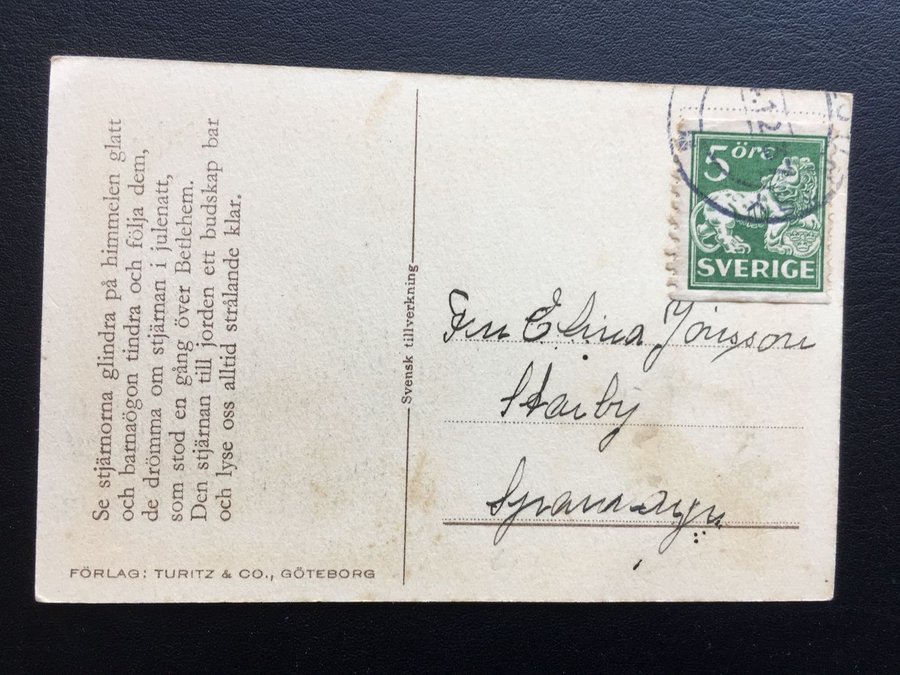 Se stjärnorna glindra på himmelen glatt
och barnaögon tindra och följa dem,
de drömma om stjärnan i julenatt,
som stod en gång över Betlehem.
Den stjärnan till jorden ett budskap bar
och lyse oss alltid strålande klar.
FÖRLAG: TURITZ & CO., GÖTEBORG
Svensk tillverkning
5 öre
SVERIGE
Elina Jönsson
Starby